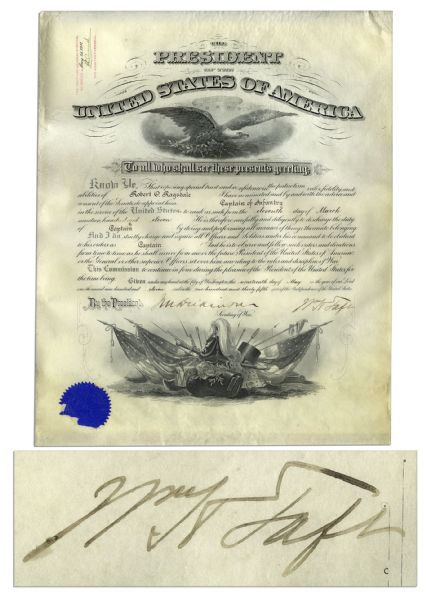 THE
PRESIDENT
OF THE
UNITED STATES OF AMERICA
To all who shall see these presents greeting:
Know Ye, That reposing special trust and confidence in the patriotism, valor, fidelity and
abilities of Robert O. Ragsdale I have nominated and by and with the advice and
consent of the Senate do appoint him Captain of Infantry
in the service of the United States: to rank as such from the eleventh day of March
nineteen hundred and eleven He is therefore carefully and diligently to discharge the duty
of Captain by doing and performing all manner of things thereunto belonging.
And I do strictly charge and require all Officers and Soldiers under his command to be obedient
to his orders as Captain And he is to observe and follow such orders and directions
from time to time as he shall receive from me or the future President of the United States of America
or the General or other superior Officers set over him according to the rules and discipline of War.
This Commission to continue in force during the pleasure of the President of the United States for
the time being.
Given under my hand at the City of Washington, this nineteenth day of May in the year of our Lord
one thousand nine hundred and eleven and in the one hundred and thirty fifth year of the Independence of the United States.
By the President:
Wm H Taft
Secretary of War.
Wm H Taft
C